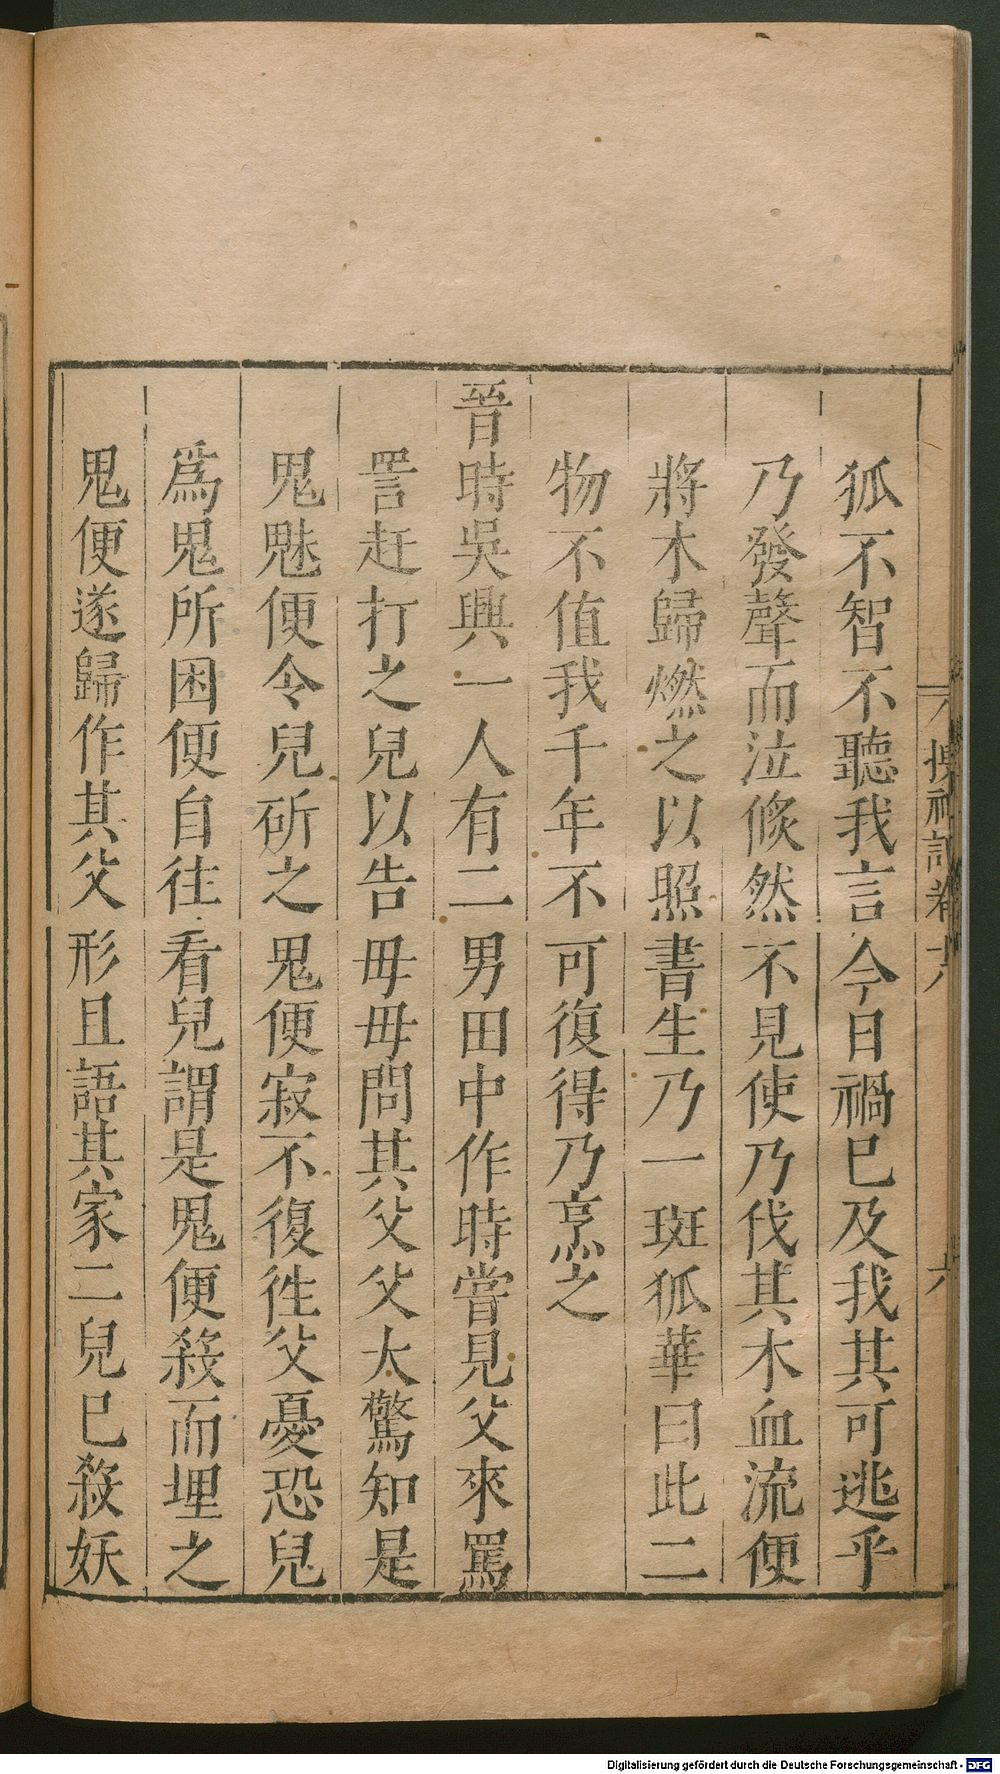 狐不智不聽我言今日禍已及我其可逃乎
乃發聲而泣倐然不見使乃伐其木血流便
將木歸燃之以照書生乃一斑狐華曰此二
物不值我千年不可復得乃烹之
晉時吳興一人有二男田中作時嘗見父來罵
詈赶打之兒以告母母問其父父大驚知是
鬼魅便令兒斫之鬼便寂不復徃父憂恐兒
爲鬼所困便自往看兒謂是鬼便殺而埋之
鬼便遂歸作其父形且語其家二兒已殺妖
Digitalisierung gefördert durch die Deutsche Forschungsgemeinschaft - DFG